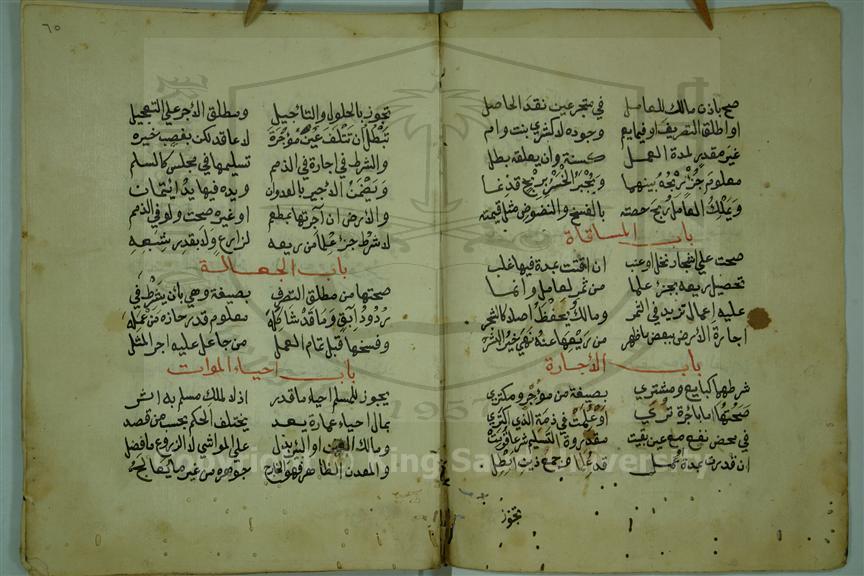 صح باذن مالك للعامل في متجر عين نقد الحاصل
او اطلق التصريف او فيما يعم وجوده لا كشرى بنت وام
غير مقدر لمدة العمل كسنة وان يعلقه بطل
معلوم جزء ربحه بينهما ويجبر الخسر بربح قد نما
ويملك العامل ربح حصته بالفسخ والنضوض مثل قيمته
باب المساقاة
صحت على اشجار نخل او عنب ان اقتت بمدة فيها غلب
تحصيل ريعه بجزء علما من ثمر لعامل وانما
عليه اعمال تزيد في الثمر ومالك يحفظ اصلا كالشجر
اجارة الارض ببعض ما ظهر من ريعها عنه نهى خير البشر
باب الاجارة
شرطهما كبايع ومشتري بصيغة من مؤجر ومكتري
صحتها اما باجرة ترى او علمت في ذمة الذي اكترى
في محض نفع مع عين بقيت مقدورة التسليم شرعا قومت
ان قدرت بمدة او عمل قد علما وجمع ذين ابطل
تجوز
٦٥
تجوز بالحلول والتاجيل ومطلق الاجر على التعجيل
تبطل ان تتلف عين مؤجرة لا عاقد لكن بغصب خيره
والشرط في اجارة في الذمم تسليمها في مجلس كالسلم
ويضمن الاجير بالعدوان ويده فيها يد ائتمان
والارض ان آجرتها بمطعم او غيره صحت ولو في الذمم
لا شرط جزء علما من ريعه لزارع ولا بقدر شبعه
باب الجعالة
صحتها من مطلق التصرف بصيغة وهي بان يشرط في
ردود آبق وما قد شاكله معلوم قدر حازه من عمله
وفسخها قبل تمام العمل من جاعل عليه اجر المثل
باب احياء الموات
يجوز للمسلم احياء ما قدر اذ لا لملك مسلم به اثر
بمال احياء عمارة يعد يختلف الحكم بحسب من قصد
ومالك البئر او العين بذل على المواشي لا الزروع ما فضل
والمعدن الظاهر فهو الخارج جوهره من غير ما يعالج
1957
King Saud University